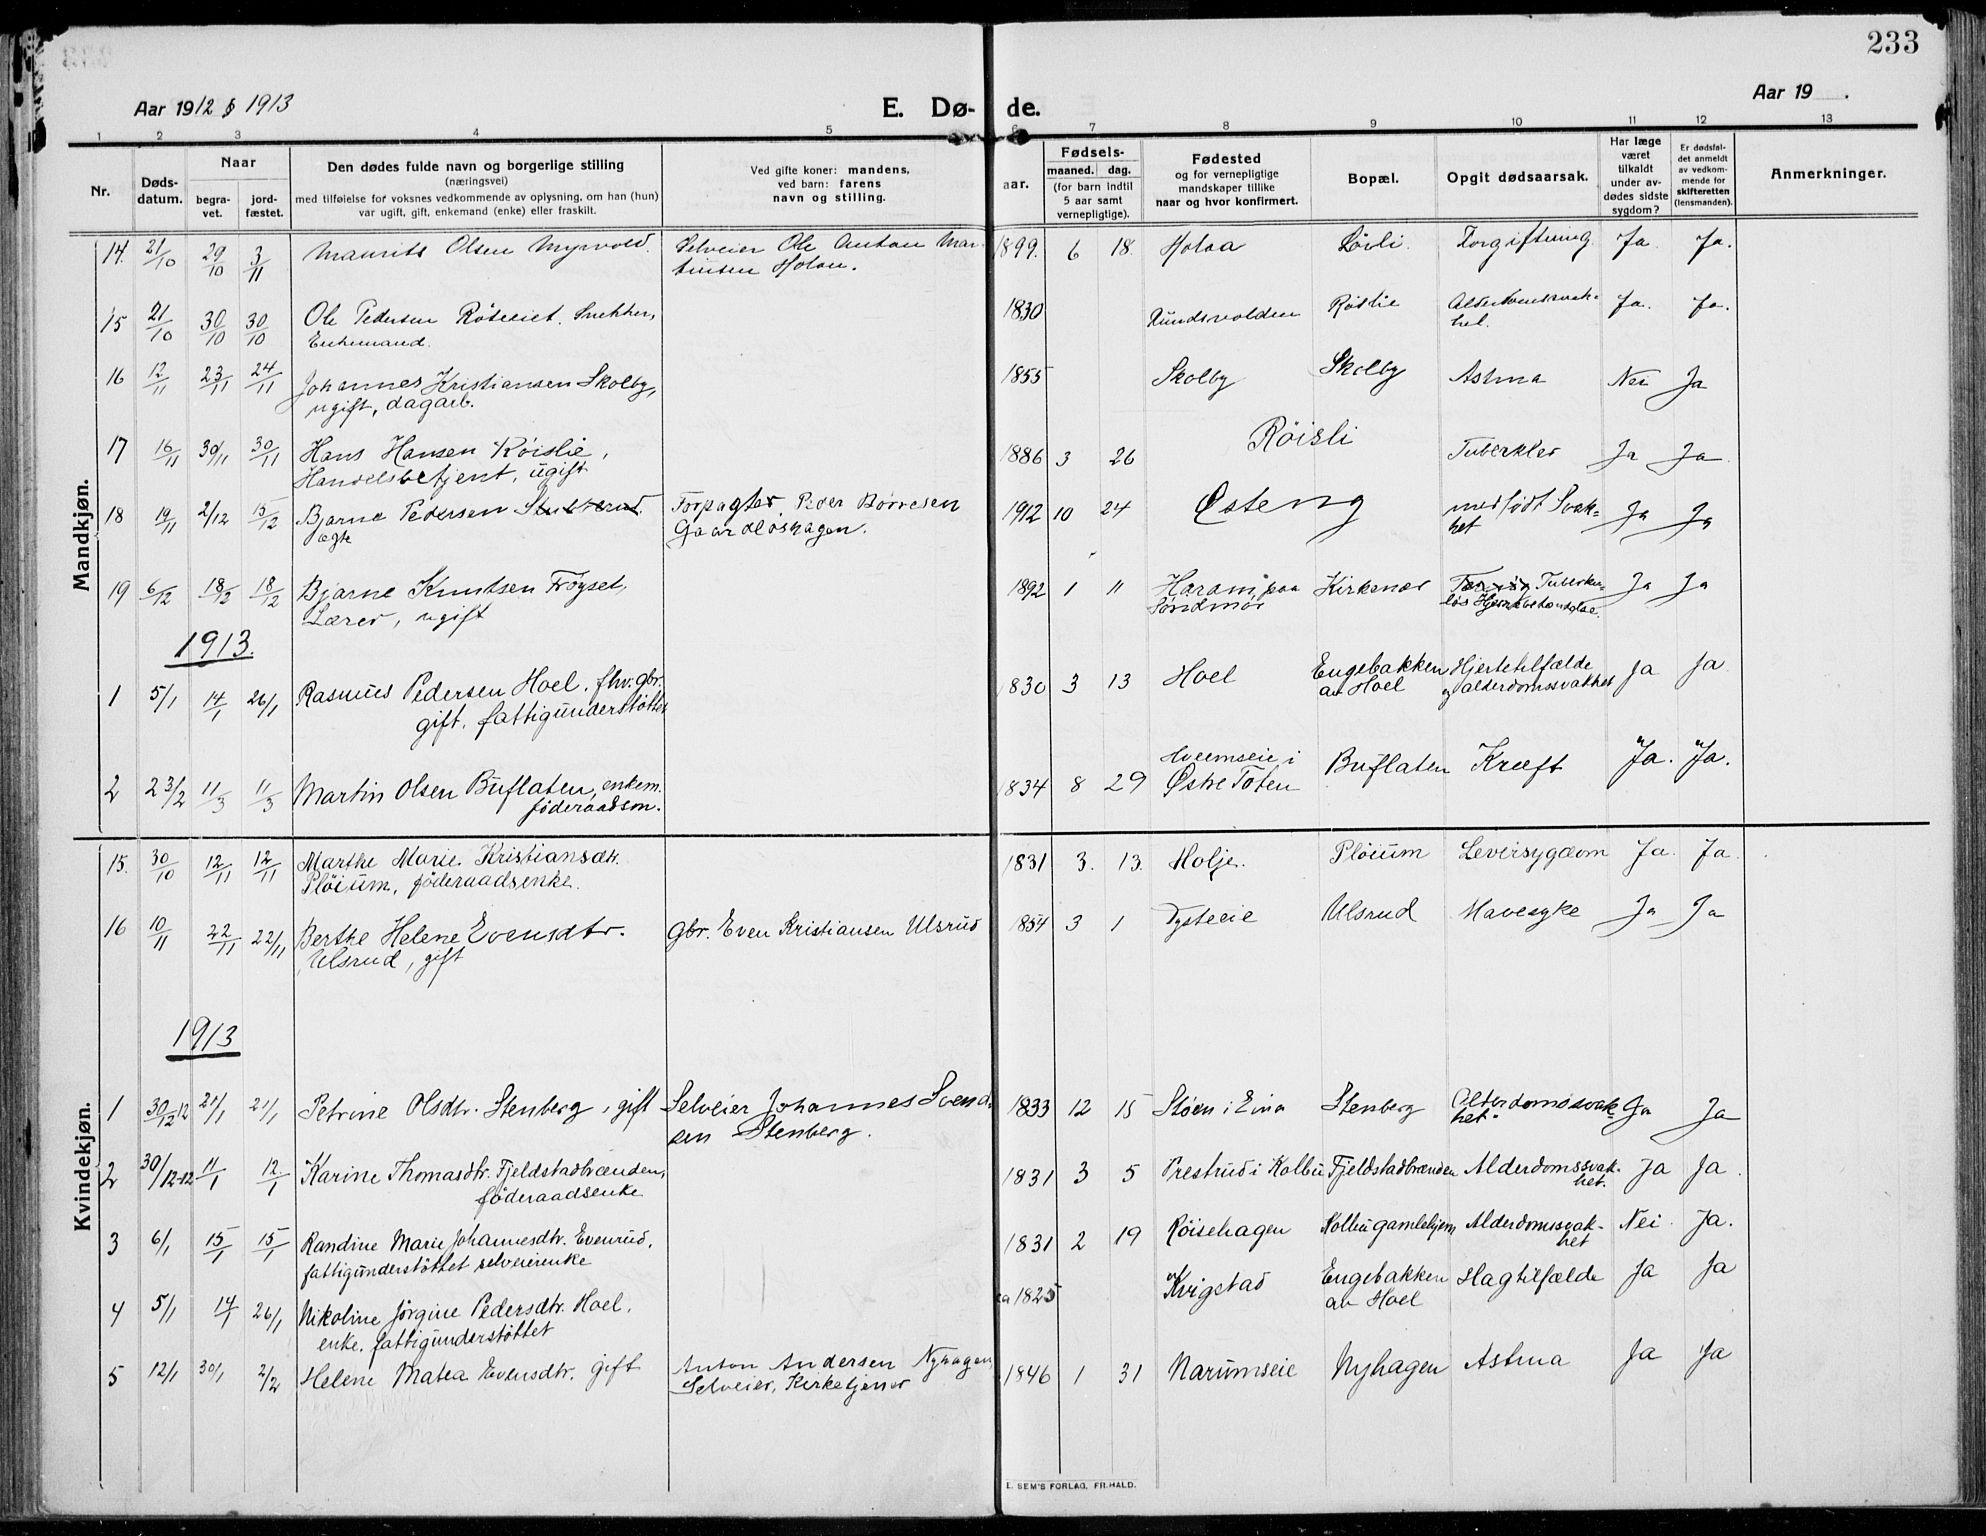 233
Aar 1912 & 1913
E. Dø-
de.
Aar 19 .
1 2 3 4 5 6 7 8 9 10 11 12 13
Nr.
Døds-
datum.
Naar
begra-
vet.
jord-
fæstet.
Den dødes fulde navn og borgerlige stilling
(næringsvei)
med tilføielse for voksnes vedkommende av oplysning, om han (hun)
var ugift, gift, enkemand (enke) eller fraskilt.
Ved gifte koner: mandens,
ved barn: farens
navn og stilling.
Fødsels-
aar.
maaned. dag.
(for barn indtil
5 aar samt
vernepligtige).
Fødested
og for vernepligtige
mandskaper tillike
naar og hvor konfirmert.
Bopæl.
Opgit dødsaarsak.
Har læge
været
tilkaldt
under av-
dødes sidste
sygdom?
Er dødsfal-
det anmeldt
av vedkom-
mende for
skifteretten
(lensmanden).
Anmerkninger.
Mandkjøn.
14. 21/10 29/10 3/11 Maurits Olsen Myrvold. Selveier Ole Anton Mar- 1899. 6 18. Holaa Lövli. Forgiftning Ja. Ja.
tinsen Holaa.
15 21/10 30/10 30/10 Ole Pedersen Snekker, 1830 Röislie Alderdomssvak- Ja. Ja.
Enkemand. het.
16 12/11 23/11 24/11 Johannes Kristiansen Skolby, 1855 Skolby Skolby Astma Nei Ja
ugift, dagarb.
17 16/11 30/11 30/11 Hans Hansen Röislie, 1886 3 26 Röisli Tuberkler Ja Ja
Handelsbetjent, ugift
18 19/11 2/12 15/12 Bjarne Pedersen Forpagter Peder Börresen 1912 10 24 Østeng medfödt Svak- Ja Ja
ægte Gaardløshagen. het
19 6/12 18/12 18/12 Bjarne Knutsen Fröyset, 1892 1 11 Haram paa Kirkenær Tuberku- Ja Ja
Lærer, ugift Söndmör
1913.
1 5/1 14/1 26/1 Rasmus Pedersen Hoel, fhv. gbr. 1830 3 13 Hoel Engebakken Hjertetilfælde Ja Ja
gift. fattigunderstöttet av Hoel og alderdomssvakhet
2 23/2 11/3 11/3 Martin Olsen Buflaten, enkem. 1834 8 29 Hveemseie i Buflaten Kræft "Ja. "Ja.
föderaadsm. Østre Toten
Kvindekjøn.
15. 30/10 12/11 12/11 Marthe Marie Kristiansdtr. 1831 3. 13. Holje. Plöium Leversygdom Ja. Ja.
Plöium, föderaadsenke.
16 10/11 22/11 22/11 Berthe Helene Evensdtr. gbr. Even Kristiansen Ulsrud 1854 3 1 Tysteeie Ulsrud Mavesyke Ja Ja
Ulsrud, gift
1913
1 30/12-12 21/1 21/1 Petrine Olsdtr. Stenberg, gift Selveier Johannes Svend- 1833 12 15 Stöen i Eina Stenberg Alderdomssvak- Ja Ja
sen Stenberg. het.
2 30/12-12 11/1 12/1 Karine Thomasdtr. Fjeldstadbrænden, 1831 3 5 Prestrud i Kolbu Fjeldstadbrænden Alderdomssvak- Ja Ja.
föderaadsenke het.
3 6/1 15/1 15/1 Randine Marie Johannesdtr. Evenrud, 1831 2 19 Röisehagen Kolbu gamlehjem Alderdomssvak- Nei. Ja.
fattigunderstöttet selveierenke het
4 5/1 14/1 26/1 Nikoline Jörgine Pedersdtr. Hoel, ca 1825 Kvigstad Engebakken Slagtilfælde Ja Ja
enke. fattigunderstöttet av Hoel
5 12/1 30/1 2/2 Helene Matea Evensdtr. gift Anton Andersen Nyhagen, 1846 1 31 Narumseie Nyhagen Astma Ja Ja
Selveier, Kirketjener
E. SEM'S FORLAG, FR.HALD.